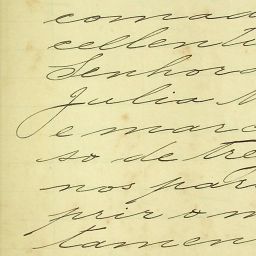 comad
cellenti
Senhora
Julia M
e marc
so de tre
nos para
prir o m
tamen